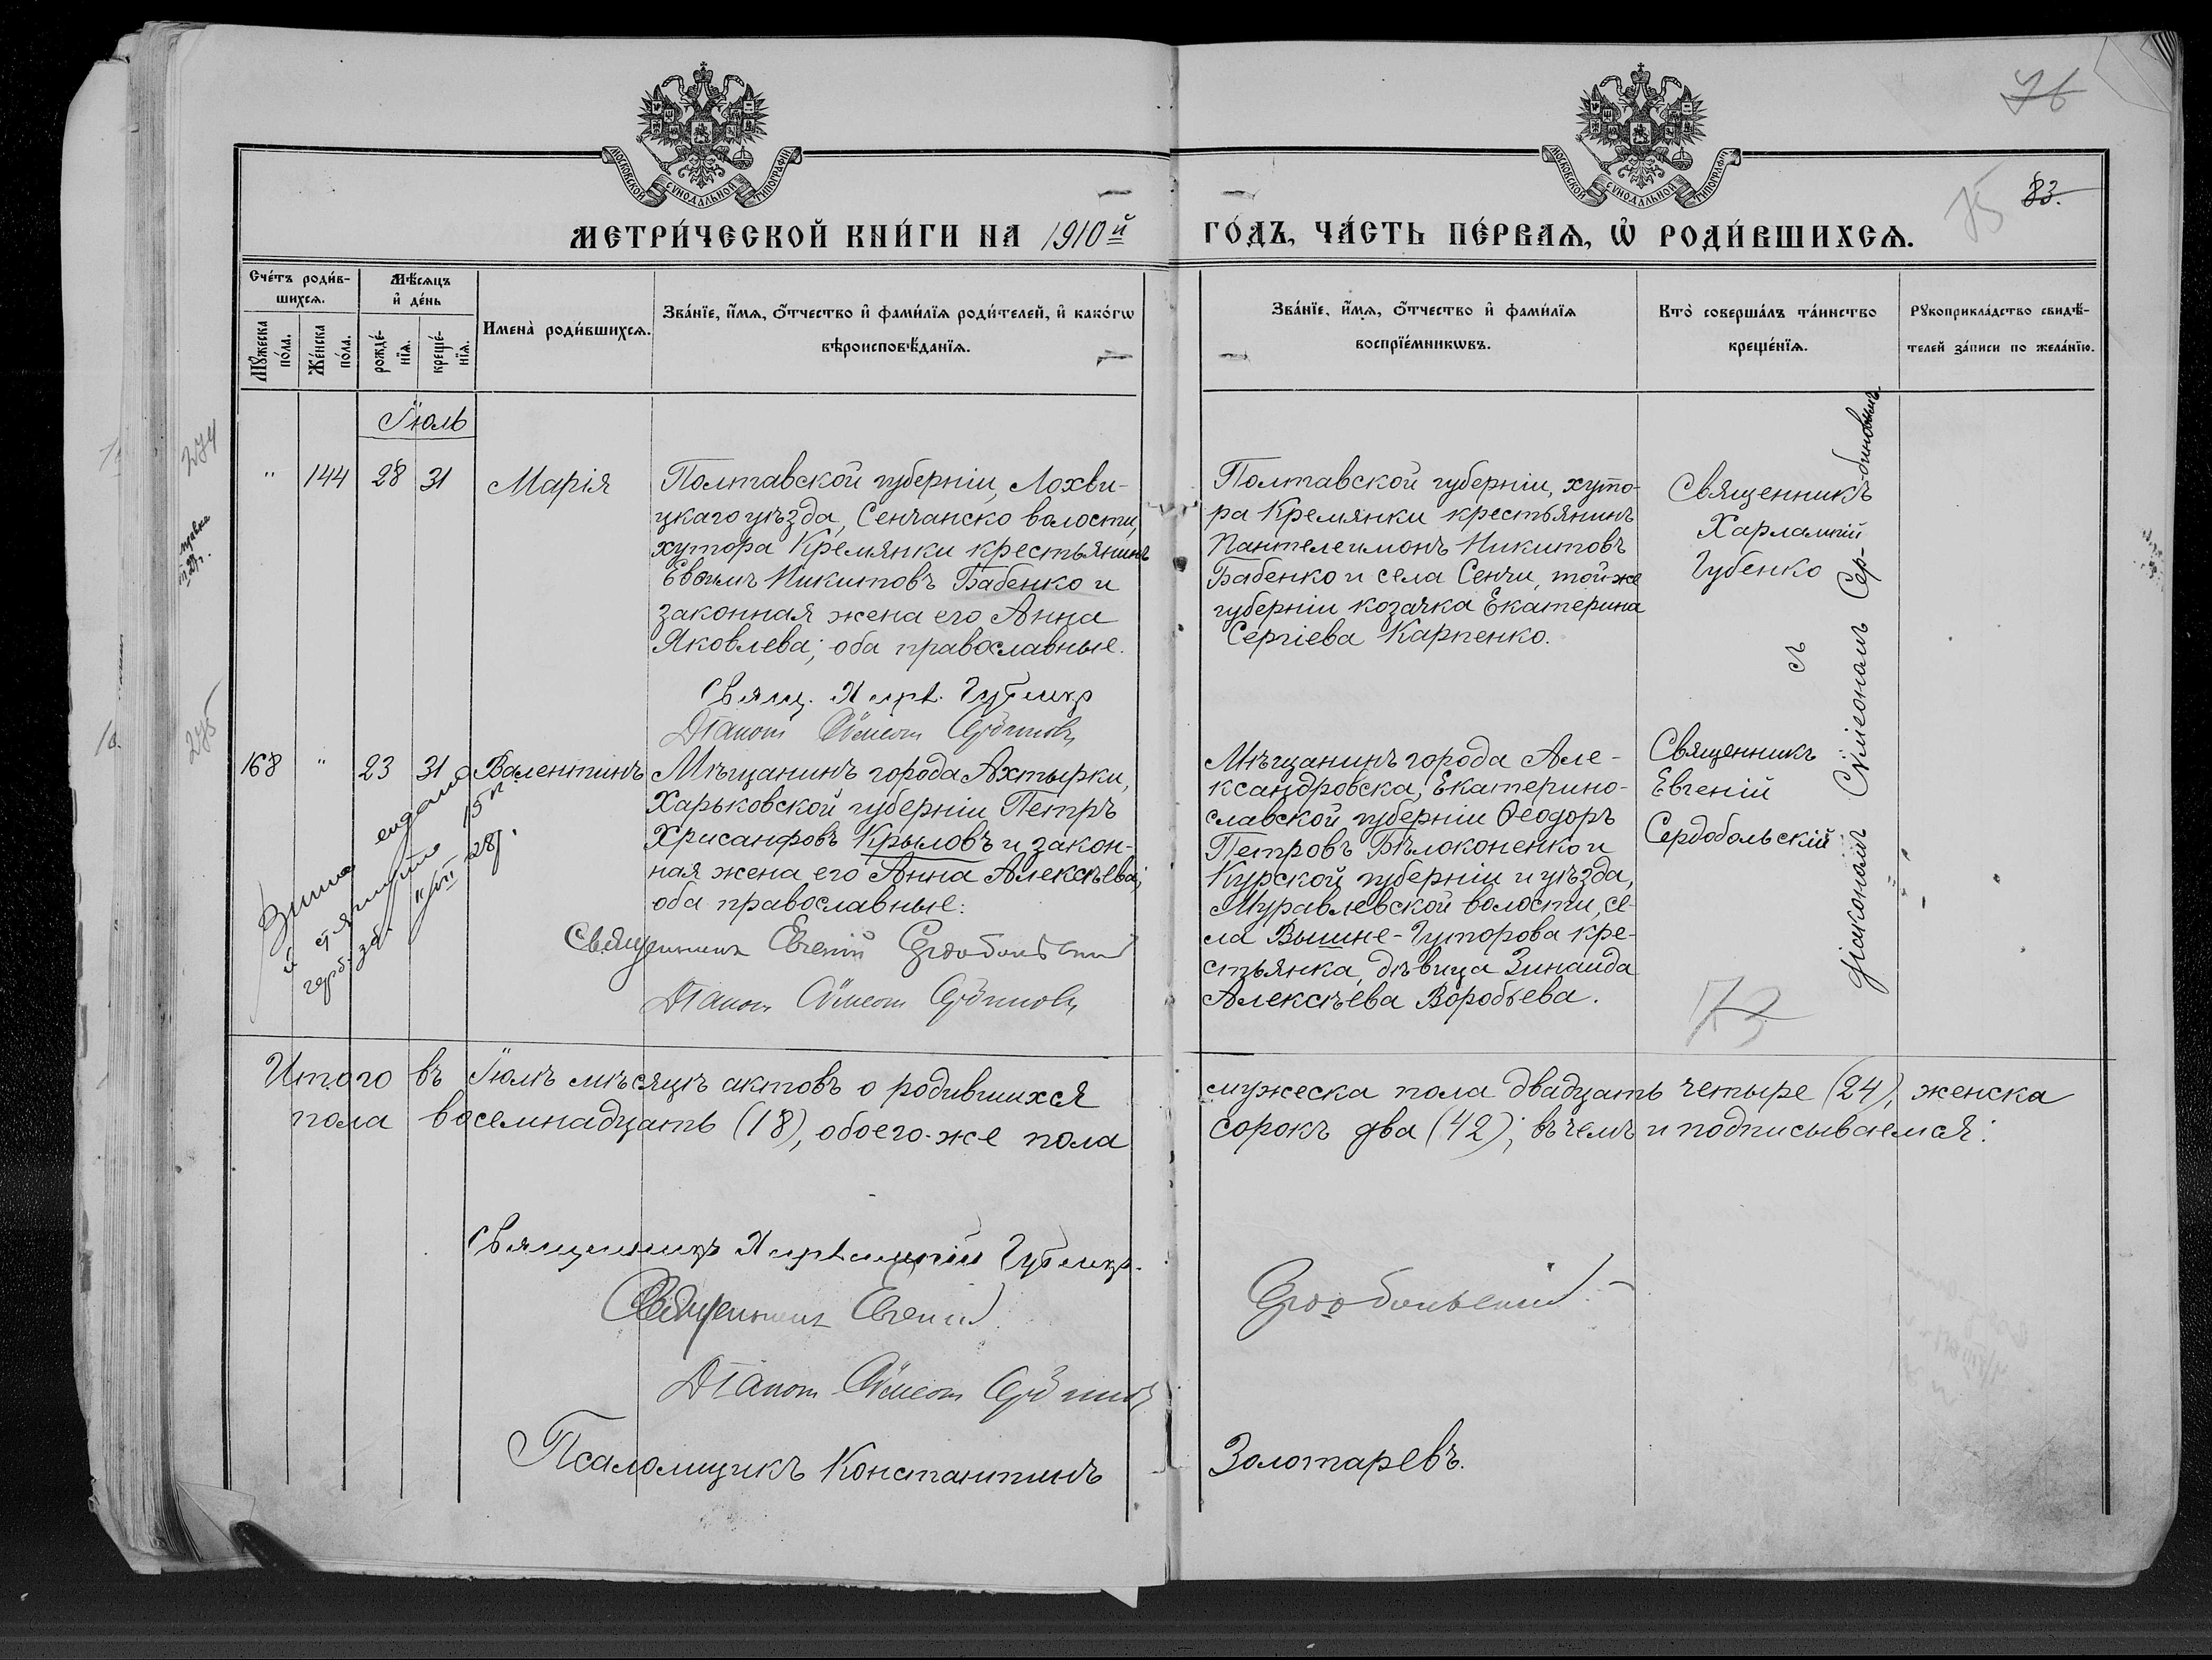 76
83.
75
МОСКОВСКОЙ СѴНОДАЛЬНОЙ ТИПОГРАФІИ
МОСКОВСКОЙ СѴНОДАЛЬНОЙ ТИПОГРАФІИ
МЕТРИ́ЧЕСКОЙ КНИ́ГИ НА 1910й
ГО́ДЪ, ЧА́СТЬ ПЕ́РВАѦ, Ѡ҆ РОДИ́ВШИХСѦ.
Сче́тъ роди́в-
шихсѧ.
Мꙋ́жеска
по́ла.
Же́нска
по́ла.
Мѣ́сѧцъ
и҆ де́нь
рожде́-
нїѧ.
креще́-
нїѧ.
Имена̀ роди́вшихсѧ.
Зва́нїе, и҆́мѧ, ѻ҆́тчество и҆ фами́лїѧ роди́телей, и҆ како́гѡ
вѣроисповѣ́данїѧ.
Зва́нїе, и҆́мѧ, ѻ҆́тчество и҆ фами́лїѧ
воспрїе́мникѡвъ.
Кто̀ соверша́лъ та́инство
креще́нїѧ.
Рꙋкоприкла́дство свидѣ́-
телей за́писи по жела́нїю.
Іюль
274
" 144 28 31 Марія
Полтавской губерніи, Лохви-
цкаго уѣзда, Сенчанско волости,
хутора Кремянки крестьянинъ
Евѳимъ Никитовъ Бабенко и
законная жена его Анна
Яковлева; оба православные.
Свящ. Харл. Губенко
Діаконъ Сѵмеонъ Сербиновъ
Полтавской губерніи, хуто-
ра Кремянки крестьянинъ
Пантелеимонъ Никитовъ
Бабенко и села Сенчи, той-же
губерніи козачка Екатерина
Сергіева Карпенко.
Священникъ
Харлампій
Губенко
съ
діакономъ Сѵмеономъ Сер-
биновымъ
275
168 " 23 31 Валентинъ
Мѣщанинъ города Ахтырки,
Харьковской губерніи Петръ
Хрисанфовъ Крыловъ и закон-
ная жена его Анна Алексѣева;
оба православные:
Священникъ Евгеній Сердобольскій
Діаконъ Сѵмеонъ Сербиновъ
Мѣщанинъ города Але-
ксандровска, Екатерино-
славской губерніи Ѳеодоръ
Петровъ Бѣлоконенко и
Курской губерніи и уѣзда,
Муравлевской волости, се-
ла Вышне-Гуторова кре-
стьянка, дѣвица Зинаида
Алексѣева Воробьева.
Священникъ
Евгеній
Сердобольскій
73
Итого въ Іюлѣ мѣсяцѣ актовъ о родившихся
мужеска пола двадцать четыре (24), женска
пола восемнадцать (18), обоего-же пола
сорокъ два (42); въ чемъ и подписываемся:
Священникъ Харлампій Губенко.
Священникъ Евгеній
Сердобольскій.
Діаконъ Сѵмеонъ Сербиновъ
Псаломщикъ Константинъ
Золотаревъ.